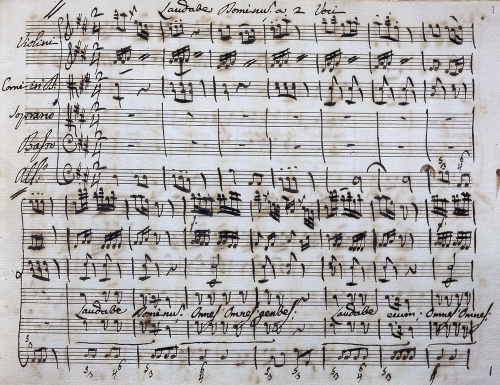 Laudate Dominus a 2 Voci
Violini
Corni in D
Soprano
Basso
Laudate Dominus. Omnes Omnes gentes. Laudate eum. Omnes Omnes.